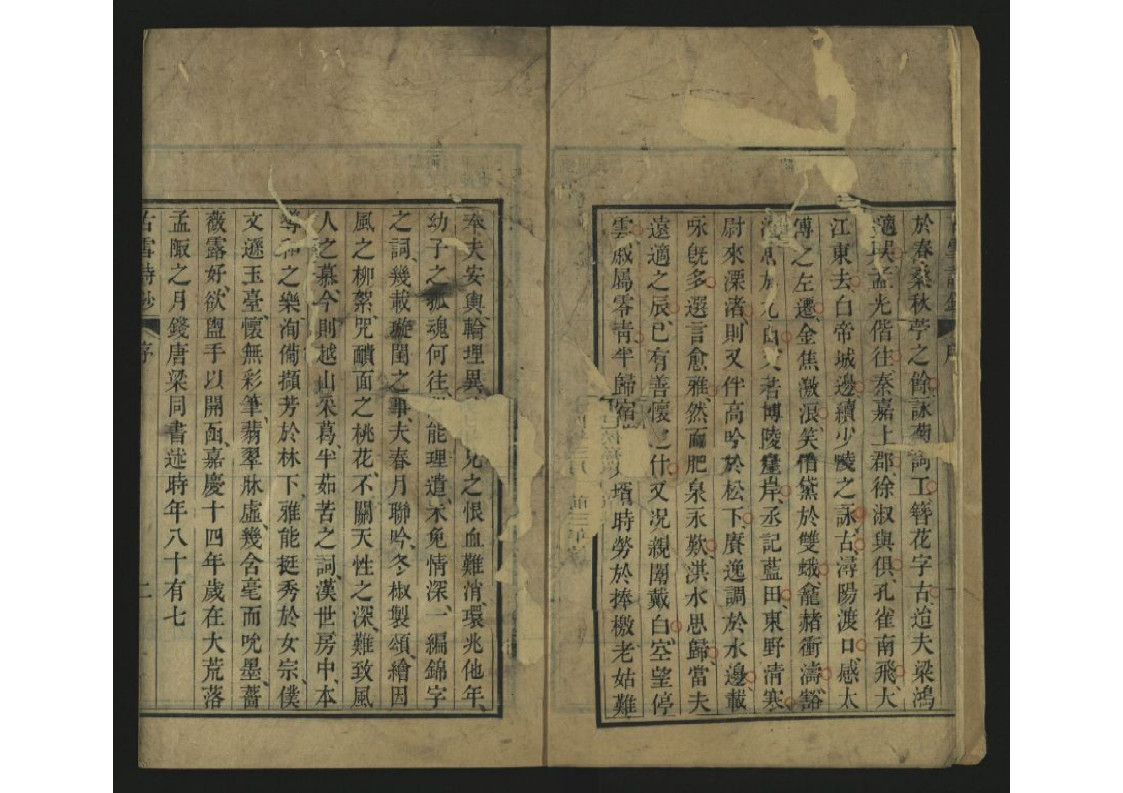 於春桑秋苧之餘詠菊詞工簪花字古迨夫梁鴻
適吳孟光偕往秦嘉上郡徐淑與俱孔雀南飛大
江東去白帝城邊續少陵之詠古潯陽渡口感太
傅之左遷金焦激浪笑借黛於雙蛾龕赭衝濤豁
若博陵崔丞記藍田東野清寒
尉來溧渚則又伴高吟於松下賡逸調於水邊載
咏旣多選言愈雅然而肥泉永歎淇水思歸當夫
遠適之辰已有善懷之什又况親闈戴白空望停
雲戚屬零青半歸宿 壻時勞於捧檄老姑難
奉夫安輿輪埋異 兒之恨血難消環兆他年
幼子之孤魂何往 能理遣不免情深一編錦字
之詞幾載璇閨之事夫春月聯吟冬椒製頌繪因
風之柳絮咒靧面之桃花不關天性之深難致風
人之慕今則越山采葛半茹苦之詞漢世房中本
尋和之樂洵徜擷芳於林下雅能挺秀於女宗僕
文遜玉臺懷無彩筆翡翠牀虛幾舍毫而吮墨薔
薇露好欲盥手以開函嘉慶十四年歲在大荒落
孟陬之月錢唐梁同書述時年八十有七
古雪詩鈔 序 二